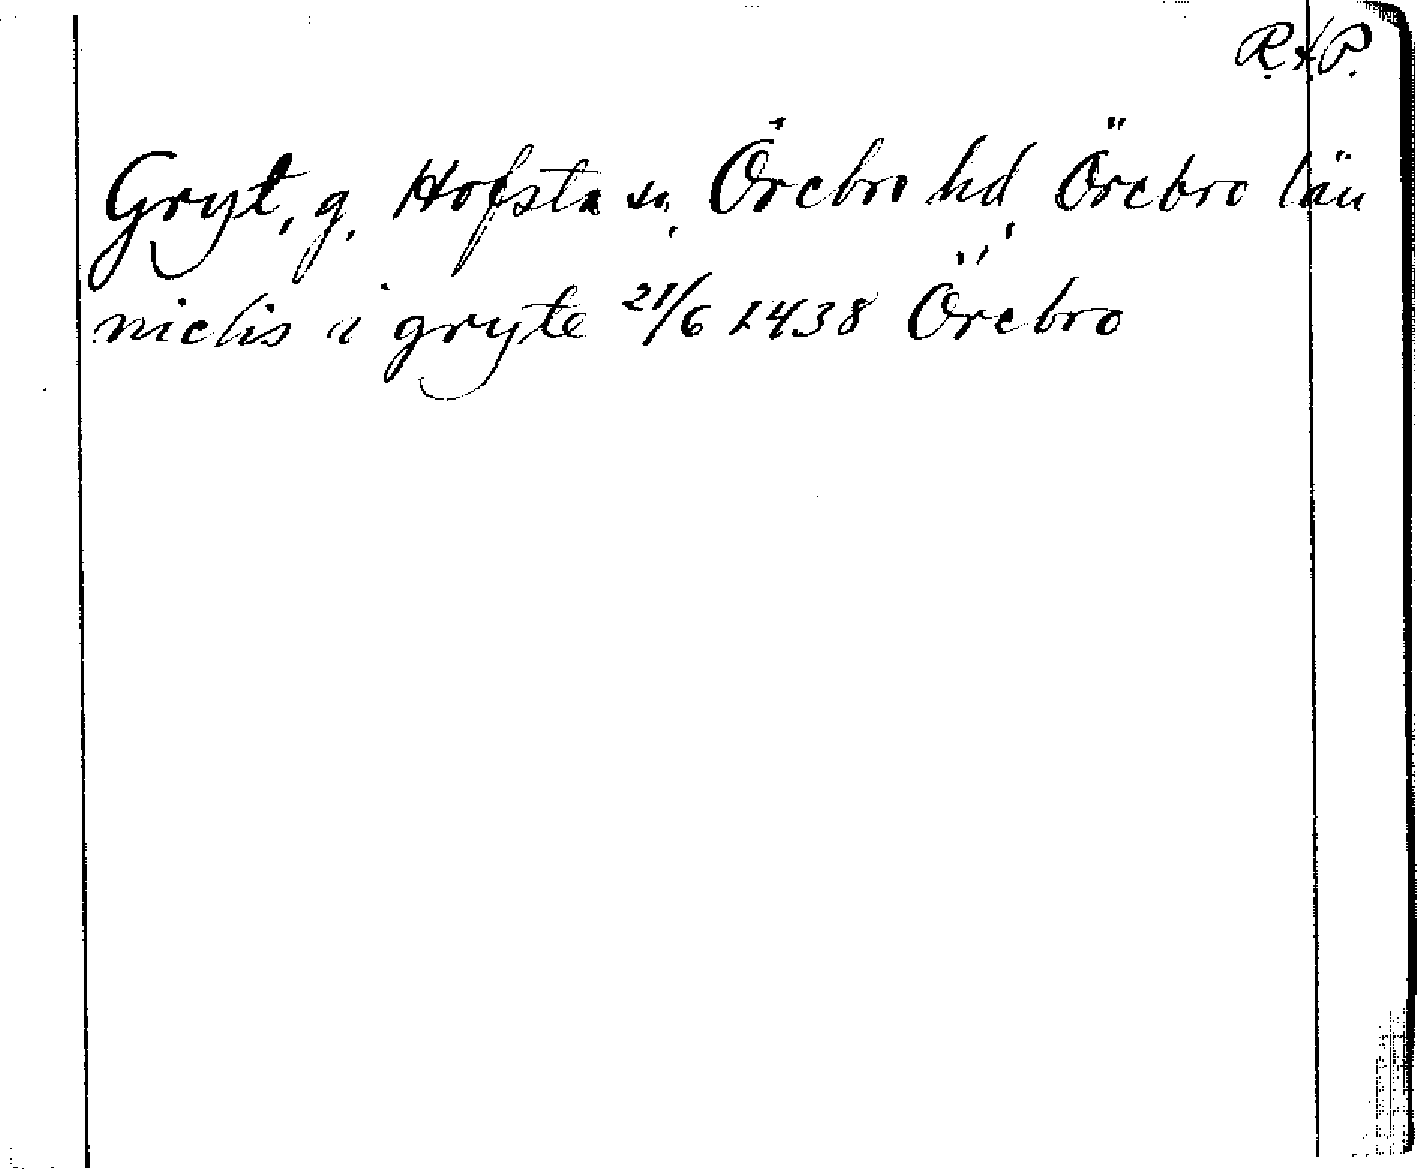 R.A.P.
Gryt, g. Hofsta sn, Örebro hd, Örebro län
niclis i gryte 21/6 1438 Örebro